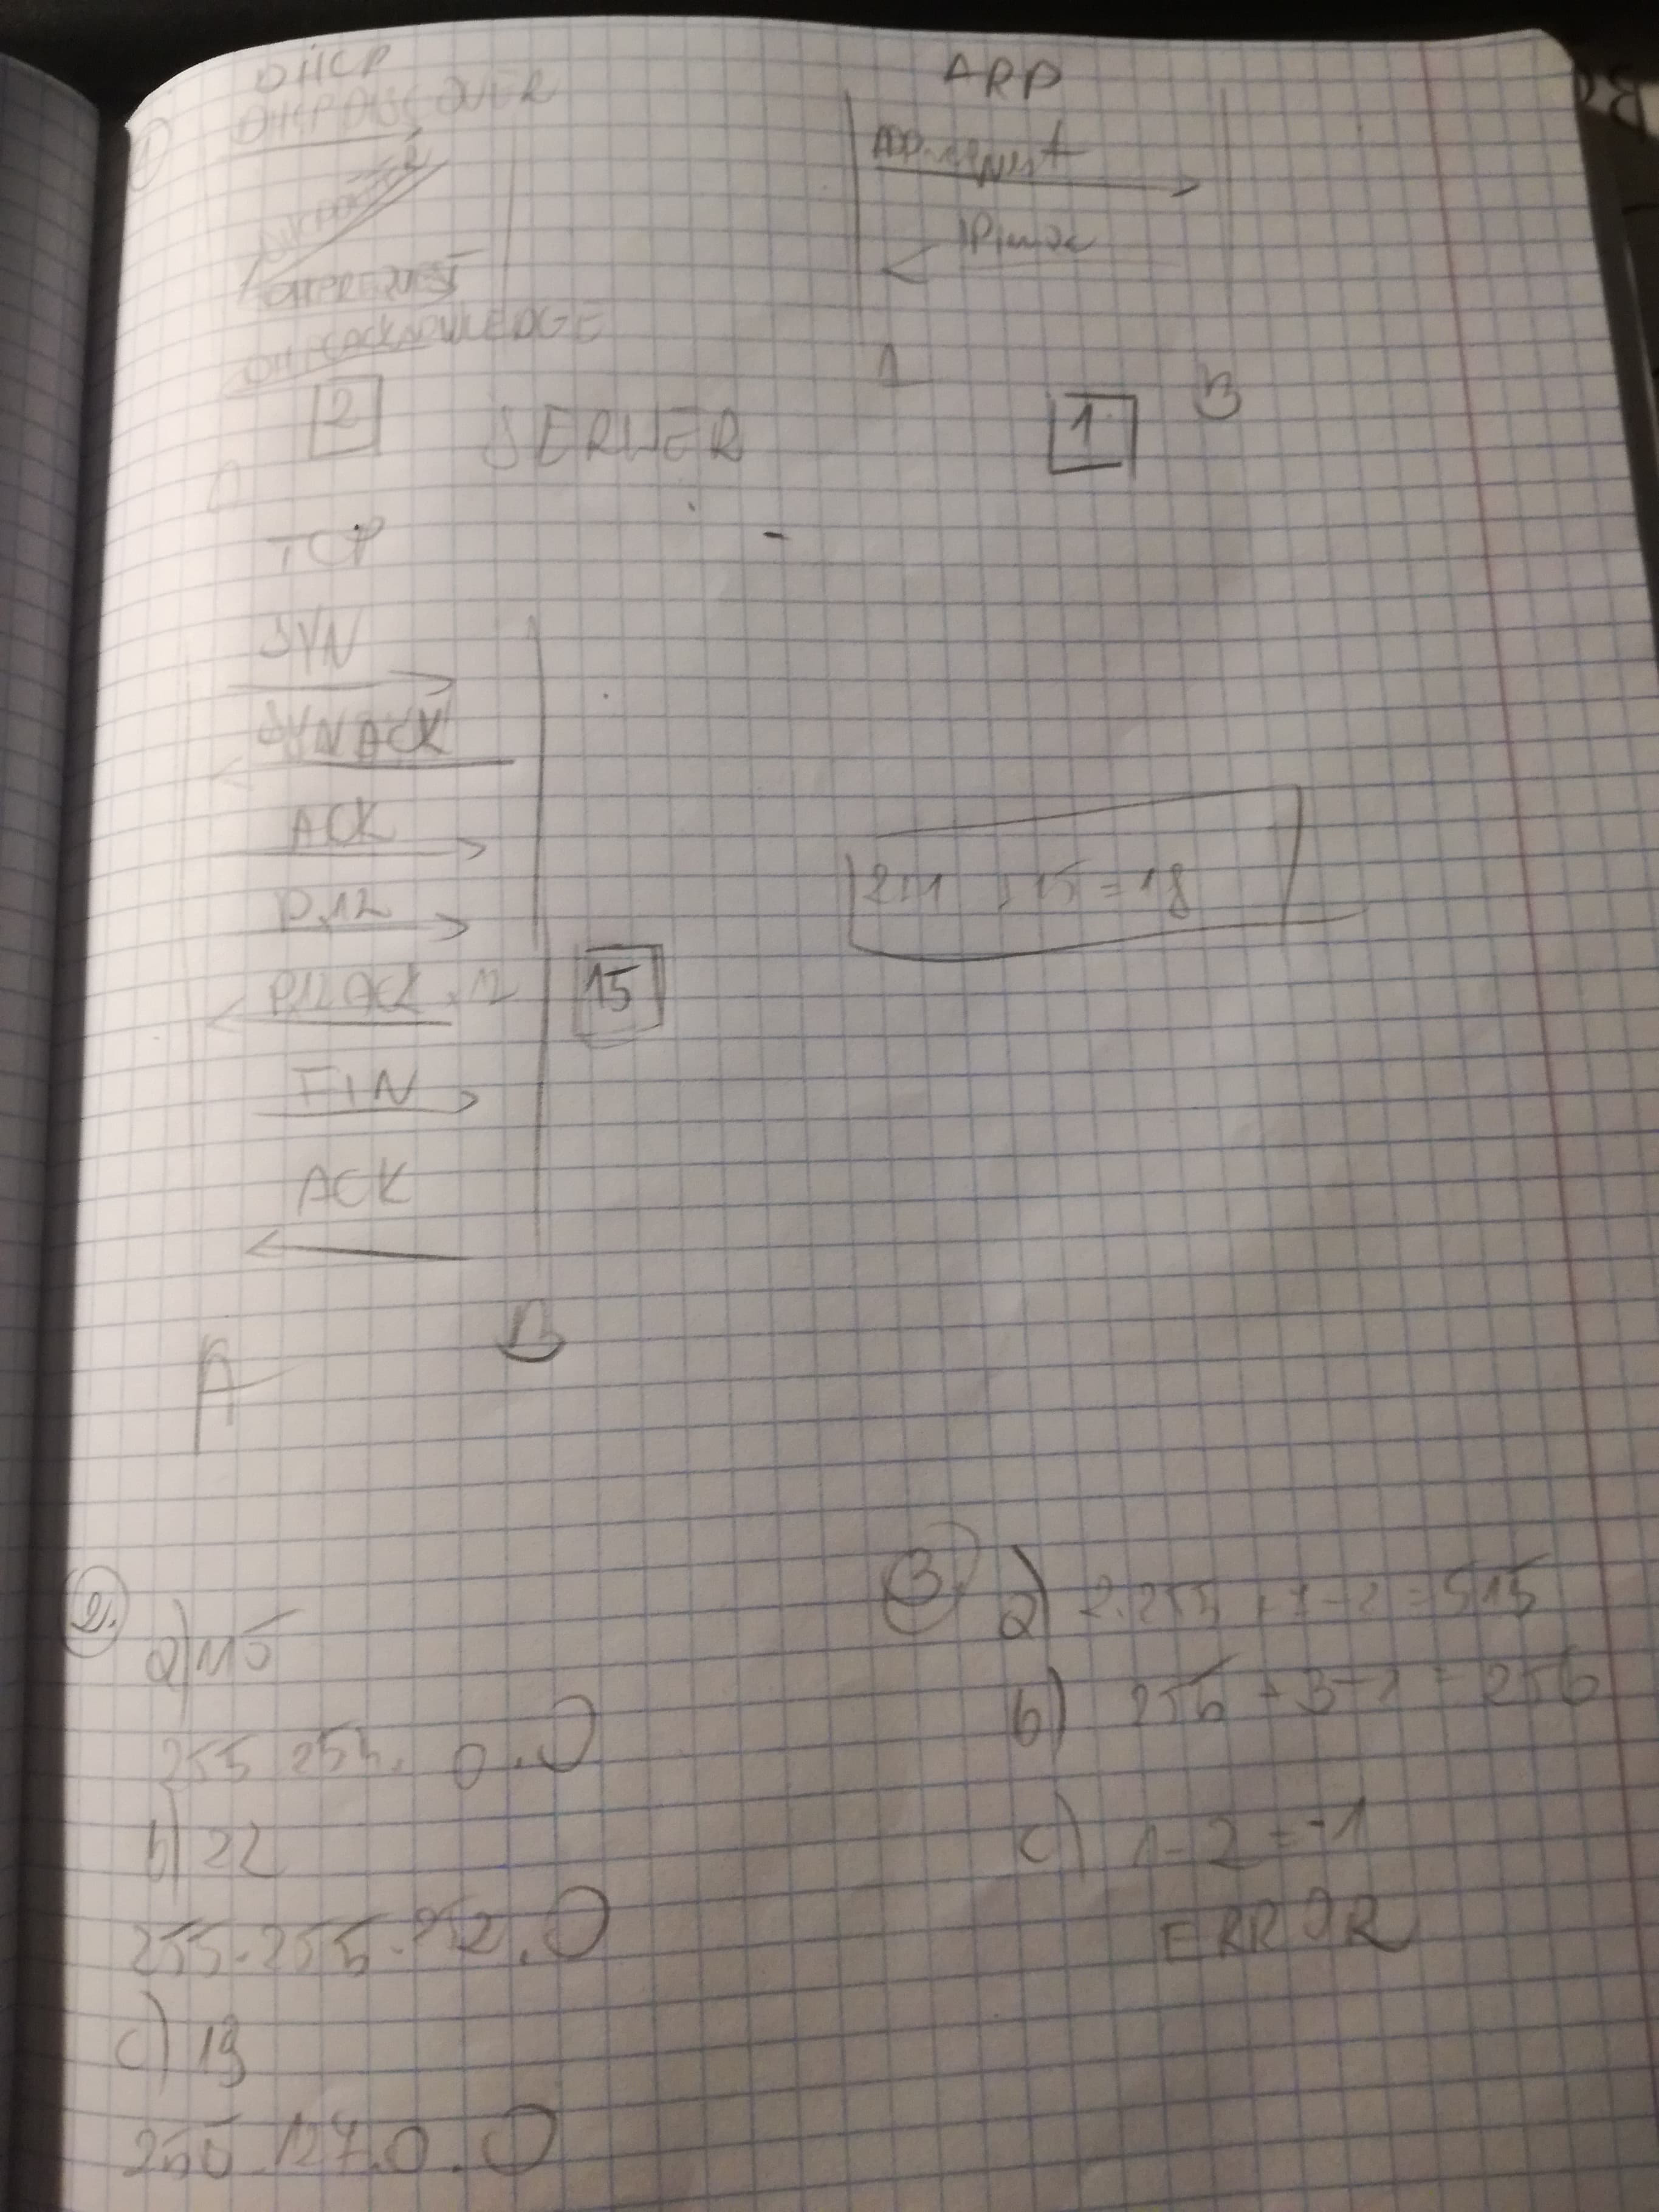 1
DHCP
DHCPDISCOVER
DHCPREQUEST
DHCPACKNOWLEDGE
2
SERWER
A
ARP
ARP request
IP/mac
1
B
TCP
SYN
SYNACK
ACK
P.12
P12ACK .12
15
FIN
ACK
A B
2+1 +15=18
2.
a)
255 255. 0.0
b) 22
255.255.252.0
c) 19
255.127.0.0
3.
a) 2.255 +7-2=515
b) 256 + 3-2 = 256
c) 1-2=-1
ERROR